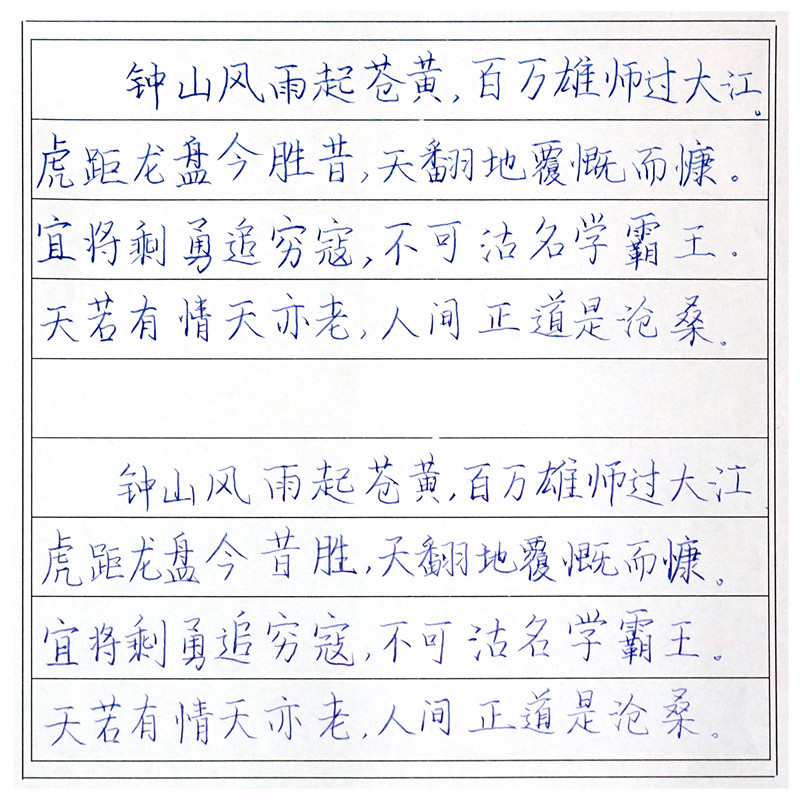 钟山风雨起苍黄,百万雄师过大江。
虎距龙盘今胜昔,天翻地覆慨而慷。
宜将剩勇追穷寇,不可沽名学霸王。
天若有情天亦老,人间正道是沧桑。
钟山风雨起苍黄,百万雄师过大江
虎距龙盘今昔胜,天翻地覆慨而慷。
宜将剩勇追穷寇,不可沽名学霸王。
天若有情天亦老,人间正道是沧桑。